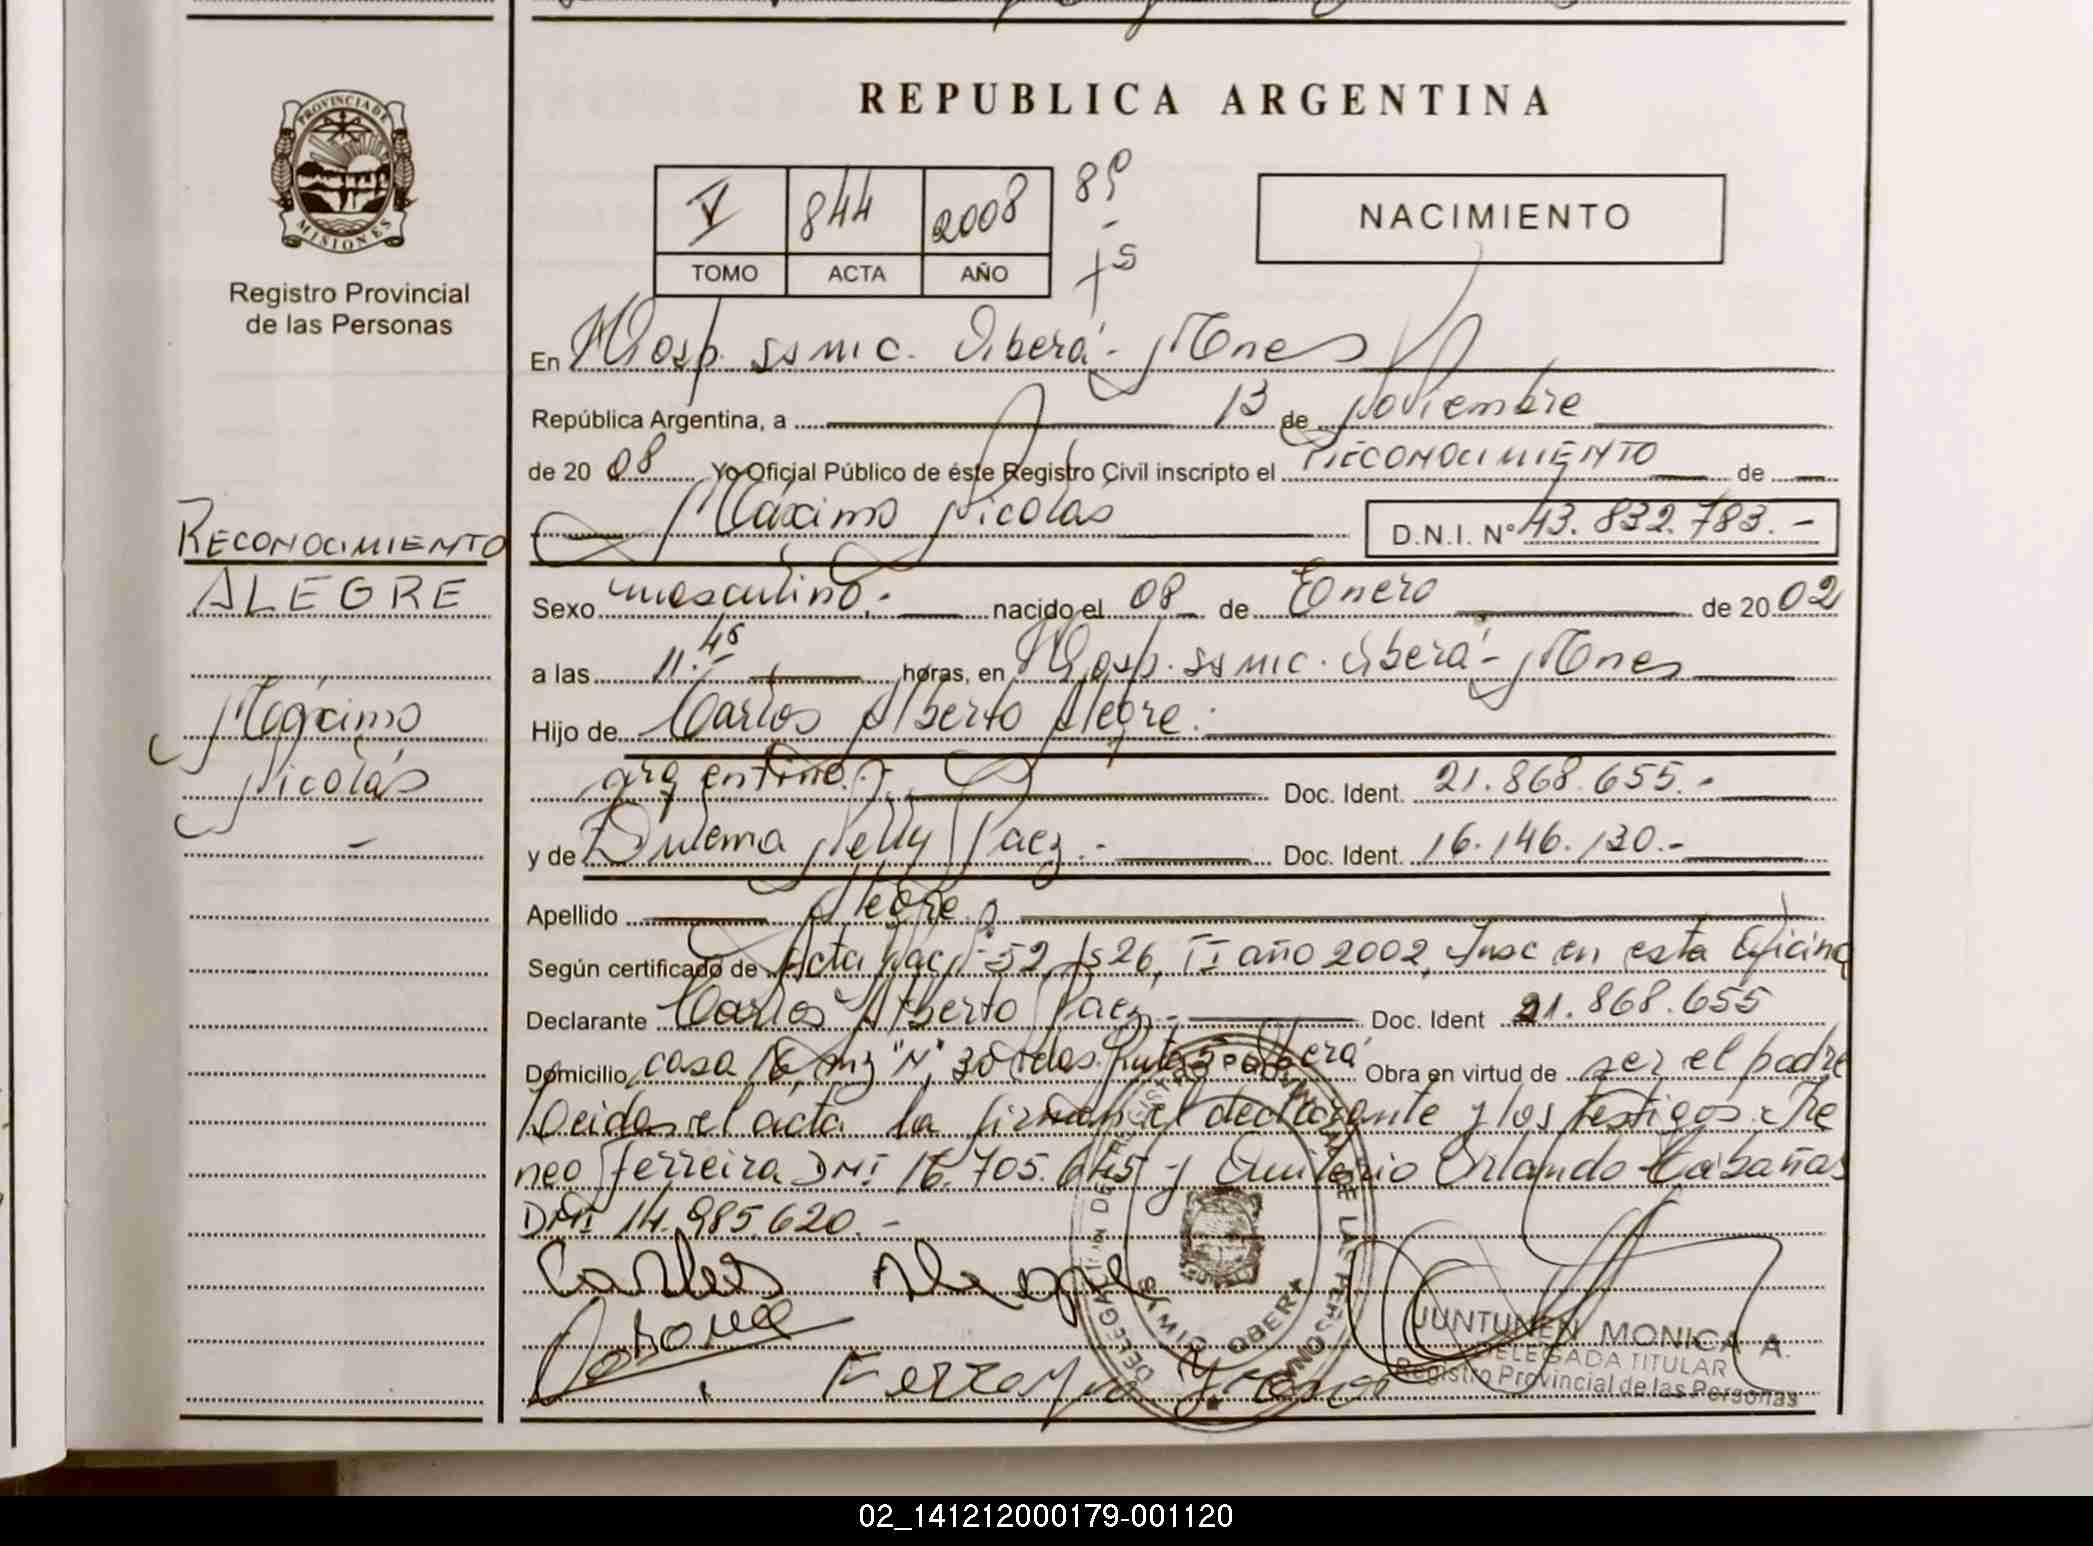 PROVINCIA DE
MISIONES
Registro Provincial
de las Personas
REPUBLICA ARGENTINA
V 844 2008
TOMO ACTA AÑO
NACIMIENTO
En Hosp. SSMIC. Oberá - Mnes
República Argentina, a 13 de Noviembre
de 20 08 Yo Oficial Público de éste Registro Civil inscripto el RECONOCIMIENTO de
Máximo Nicolás D.N.I. Nº 43.832.783.-
Sexo masculino.- nacido el 08 de Enero de 20 02
a las 11.45 horas, en Hosp. SSMIC. Oberá - Mnes
Hijo de Carlos Alberto Alegre.
argentino.- Doc. Ident. 21.868.655.-
y de Zulema Nelly Paez.- Doc. Ident. 16.146.130.-
Apellido Alegre
Según certificado de Acta Nac 52, Fs 26, TI año 2002, Insc en esta Oficina
Declarante Carlos Alberto Paez.- Doc. Ident 21.868.655
Domicilio casa 16, mz "N", 30 Oberá Obra en virtud de ser el padre
Leida el acta la firman el declarante y los testigos: Ire
neo Ferreira DNI 16.705.645 y Quiterio Orlando Cabañas
DNI 14.985.620.-
Carlos Alegre
Ferreyra Ireneo
OBERA
JUNTUNEN MONICA A.
DELEGADA TITULAR
Registro Provincial de las Personas
RECONOCIMIENTO
ALEGRE
Máximo
Nicolás
-
02_141212000179-001120